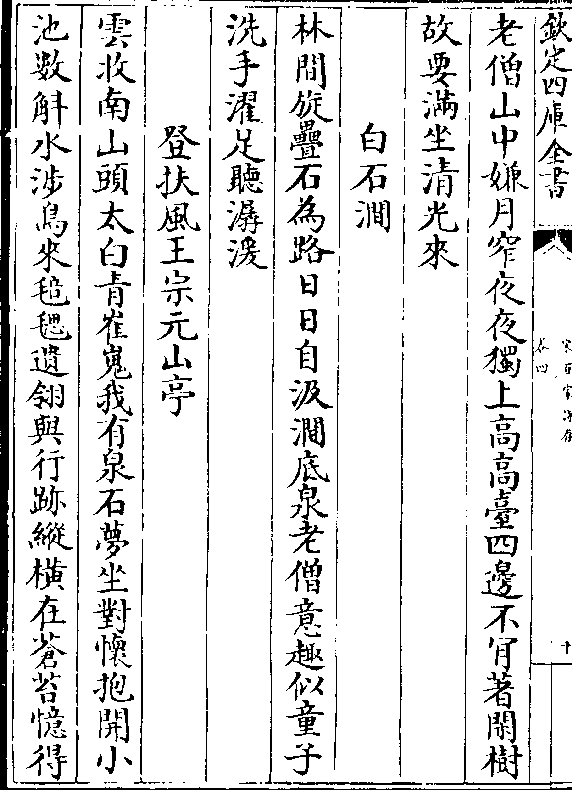 欽定四庫全書
卷四
十
老僧山中嫌月窄夜夜獨上高高臺四邊不肎著閑樹
故要滿坐清光來
白石澗
林間旋疊石為路日日自汲澗底泉老僧意趣似童子
洗手濯足聽潺湲
登扶風王宗元山亭
雲收南山頭太白青崔嵬我有泉石夢坐對懷抱開小
池數斛水涉鳥來毰毸遺翎與行跡縱橫在蒼苔憶得